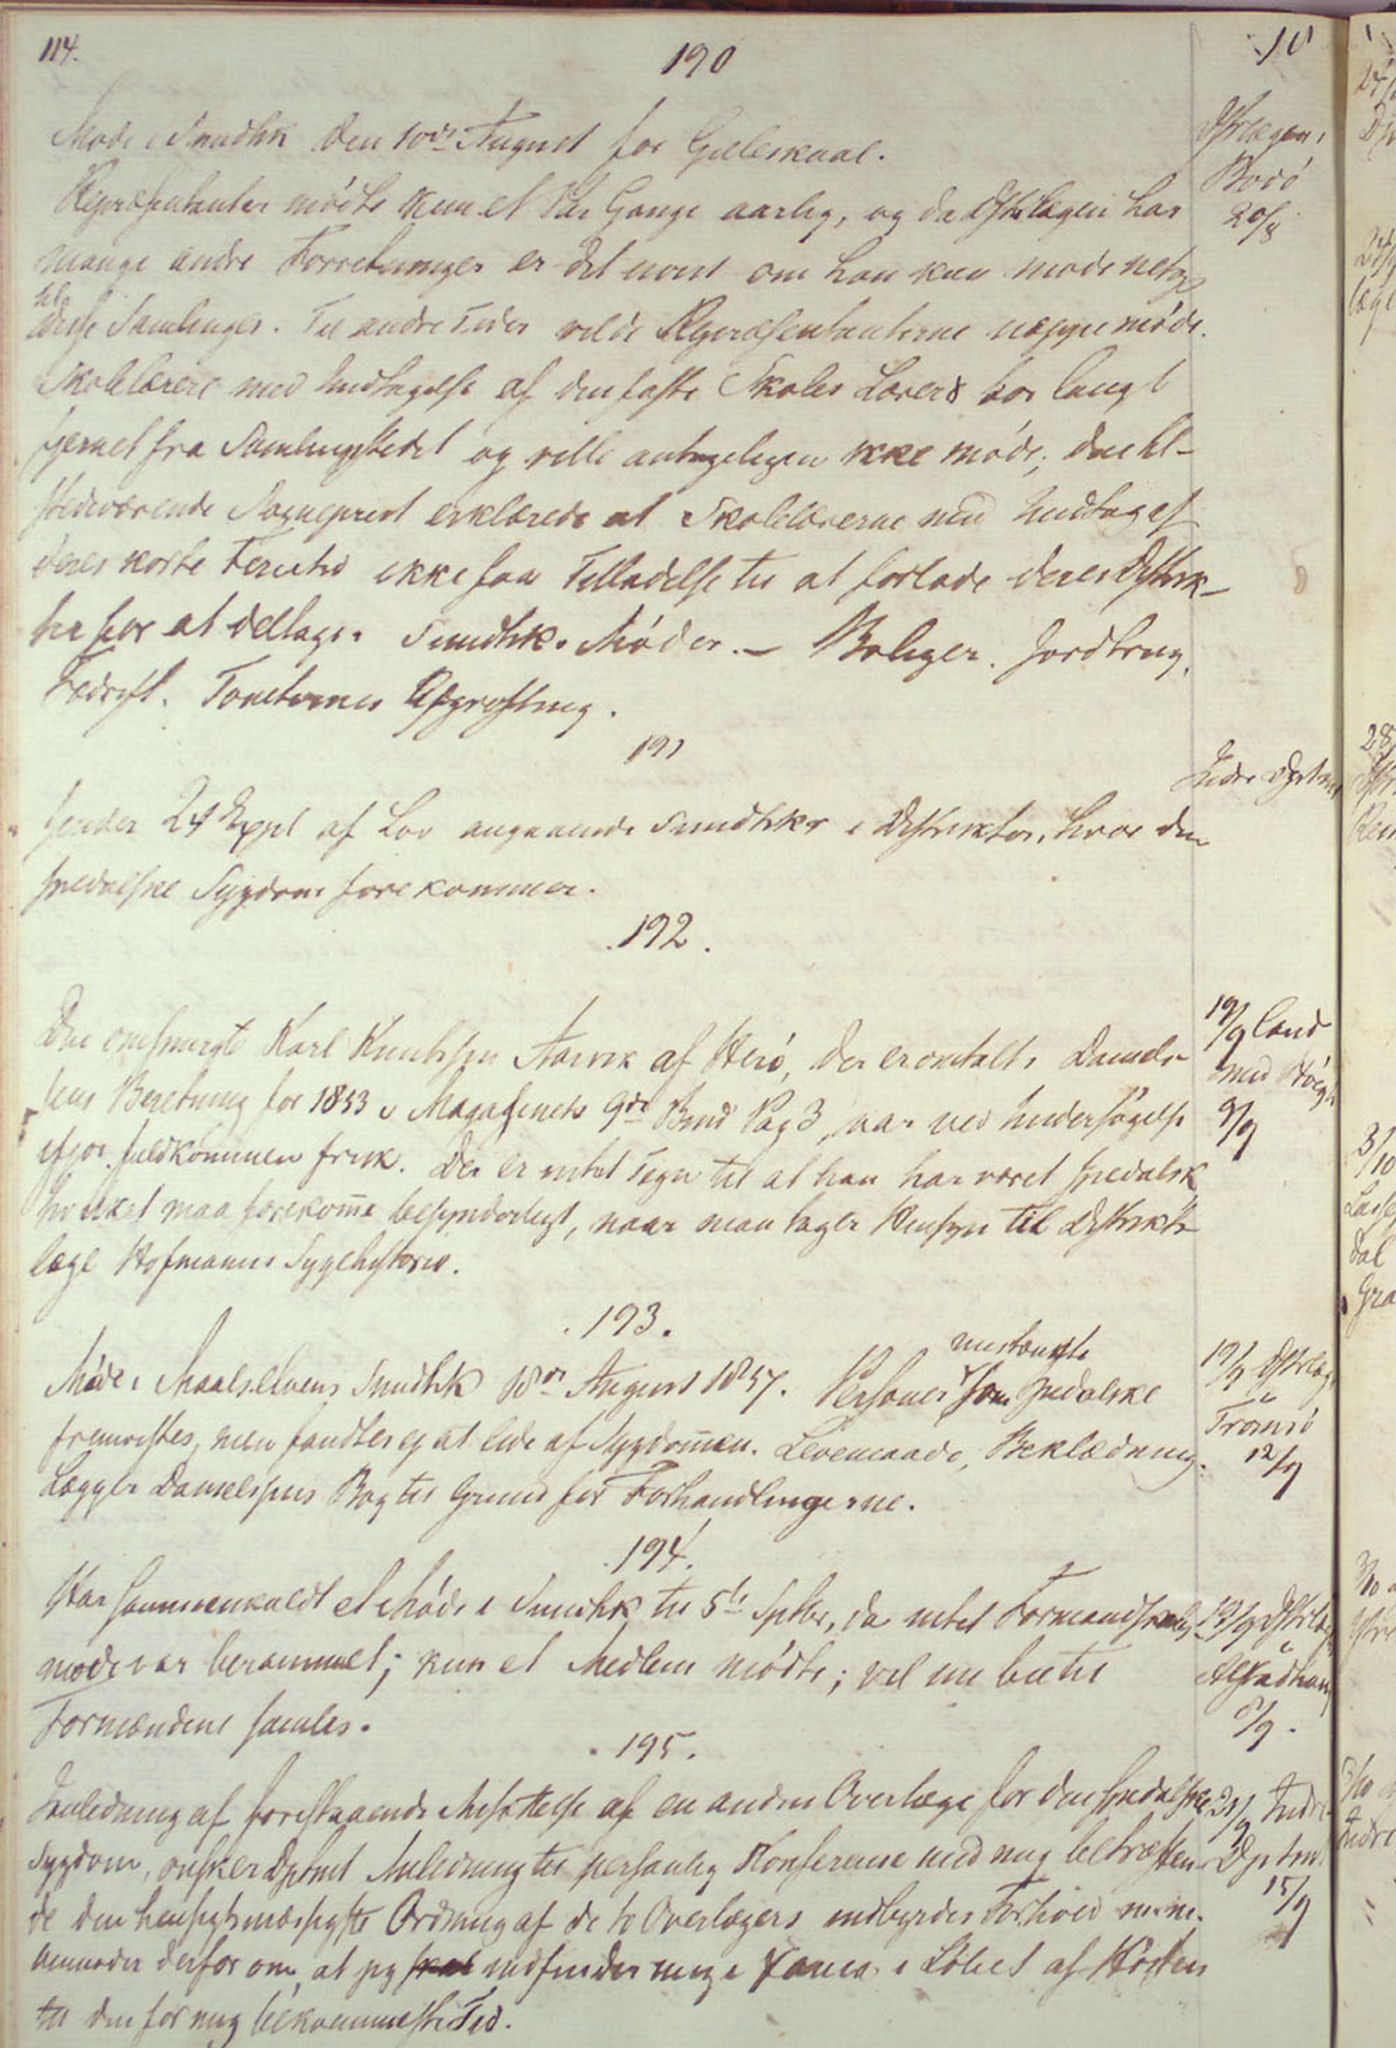 114.
190
Møde i Sundhk den 10de August for Gilleskaal.
Repræsentanter mødte kun et Par Gange aarlig, og da Distrlægen har
mange andre Forretninger er det uvist om han kan møde netop
til
disse Samlinger. Til andre Tider vilde Repræsentanterne neppe møde.
Skolelærere med Undtagelse af den faste Skoles Lærer bor langt
fjernet fra Samlingstedet og ville antageligen ikke møde; den til-
stedeværende Sogneprest erklærede at Skolelærerne med Undtag af
deres korte Ferietid ikke faa Tilladelse til at forlade deres Distrik-
ter for at deltage i Sundhk. Møder. — Boliger. Jordbrug,
Fædrift. Tomternes Afgrøftning.
Distrlægen i
Bodø
20/8
191
Sender 24 Expl af Lov angaaende Sundhkr i Distrikter, hvor den
spedalske Sygdom forekommer.
Indre Dptmt
192.
Den omspurgte Karl Knutssen Aarvik af Herø, der er omtalt i Daniels-
sens Beretning for 1853 i Magasinets 9de Bind Pag 3, var ved Undersøgelse
ifjor fuldkommen frisk. Der er intet Tegn til at han har været spedalsk
hvilket maa forekomme besynderligt, naar man tager Hensyn til Distrikts-
læge Hofmanns Sygehistorie.
19/9 Cand
med Høegh
9/9
193.
Møde i Maalselvens Sundhk 18de August 1857. Personer som spedalske
mistænkte
fremvistes, men fandtes ej at lide af Sygdommen. Levemaade, Beklædning.
Lægger Danielssens Bog til Grund for Forhandlingerne.
19/9 Distrlæg
i
Tromsø
12/9
194.
Har sammenkaldt et Møde i Sundhk til 5te Septbr, da intet Formandskabs
møde var berammet; kun et Medlem mødte; vil nu bie til
Formændene samles.
19/9 Distrlæg
8/9.
195.
I Anledning af forestaaende Ansættelse af en anden Overlæge for den spedalske
Sygdom, ønsker Dptmt Anledning til personlig Konferense med mig betræffen-
de den hensigtsmæssigste Ordning af de to Overlægers indbyrdes Forhold m.m.
anmoder derfor om, at jeg indfinder mig i Xania i Løbet af Høsten
til den for mig bekvemmeste Tid.
21/9 Indre
Dptmt
15/9